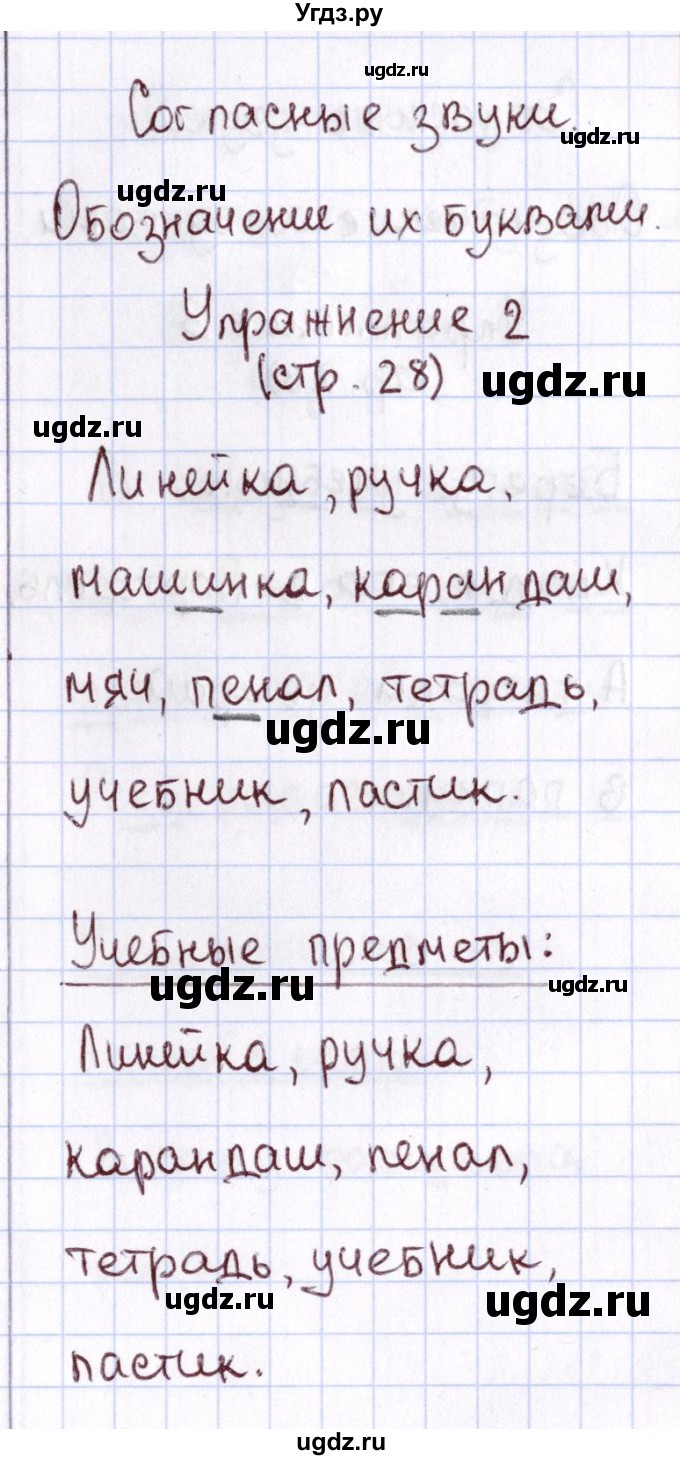 Угдз.ру
ugdz.ru
Согласные звуки.
ugdz.ru
ugdz.ru
Обозначении их буквами.
Упражнение 2
(стр. 28)
ugdz.ru
ugdz.ru
Линейка, ручка,
машинка, карандаш,
мяч, пенал, тетрадь,
ugdz.ru
учебник, ластик.
Учебные предметы:
ugdz.ru
ugdz.ru
Линейка, ручка,
карандаш, пенал,
тетрадь, учебник,
ugdz.ru
ugdz.ru
ластик.
ugdz.ru